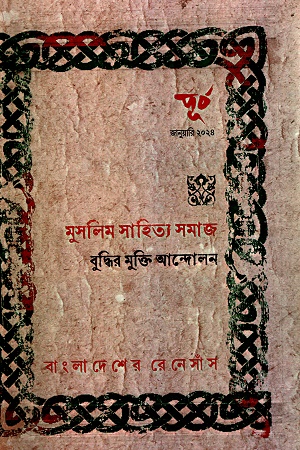 পূর্চ
জানুয়ারি ২০২৪
মুসলিম সাহিত্য সমাজ
বুদ্ধির মুক্তি আন্দোলন
বাংলাদেশের রেনেসাঁস